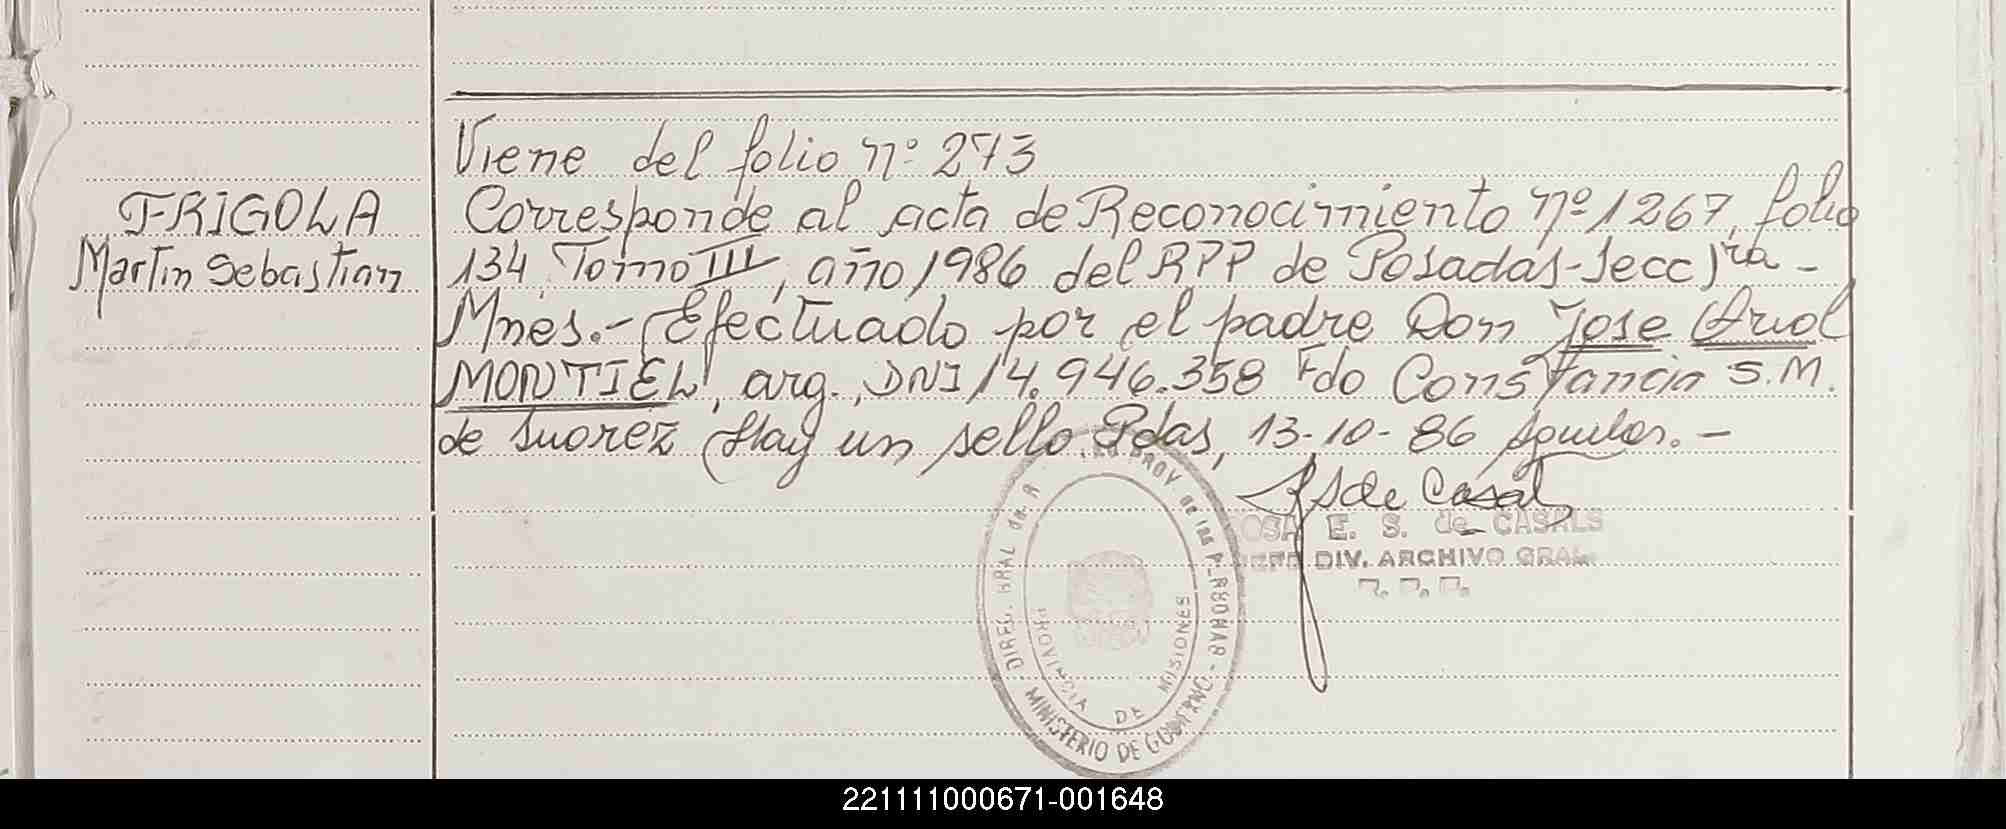 Viene del folio nº 273
FRIGOLA
Martin Sebastian
Corresponde al acta de Reconocimiento nº 1267, folio
134, Tomo III, año 1986 del RPP de Posadas-Secc 1ra -
Mnes.- Efectuado por el padre Don Jose Ariol
MONTIEL, arg., DNI 14.946.358 Fdo Constancia S.M.
de Suarez Hay un sello Pdas, 13-10-86
RS de Casals
ROSA E. S. de CASALS
JEFE DIV. ARCHIVO GRAL.
R. P. P.
DIREC. GRAL de
PROV de las PERSONAS - MINISTERIO DE GOBIERNO -
PROVINCIA DE MISIONES
221111000671-001648